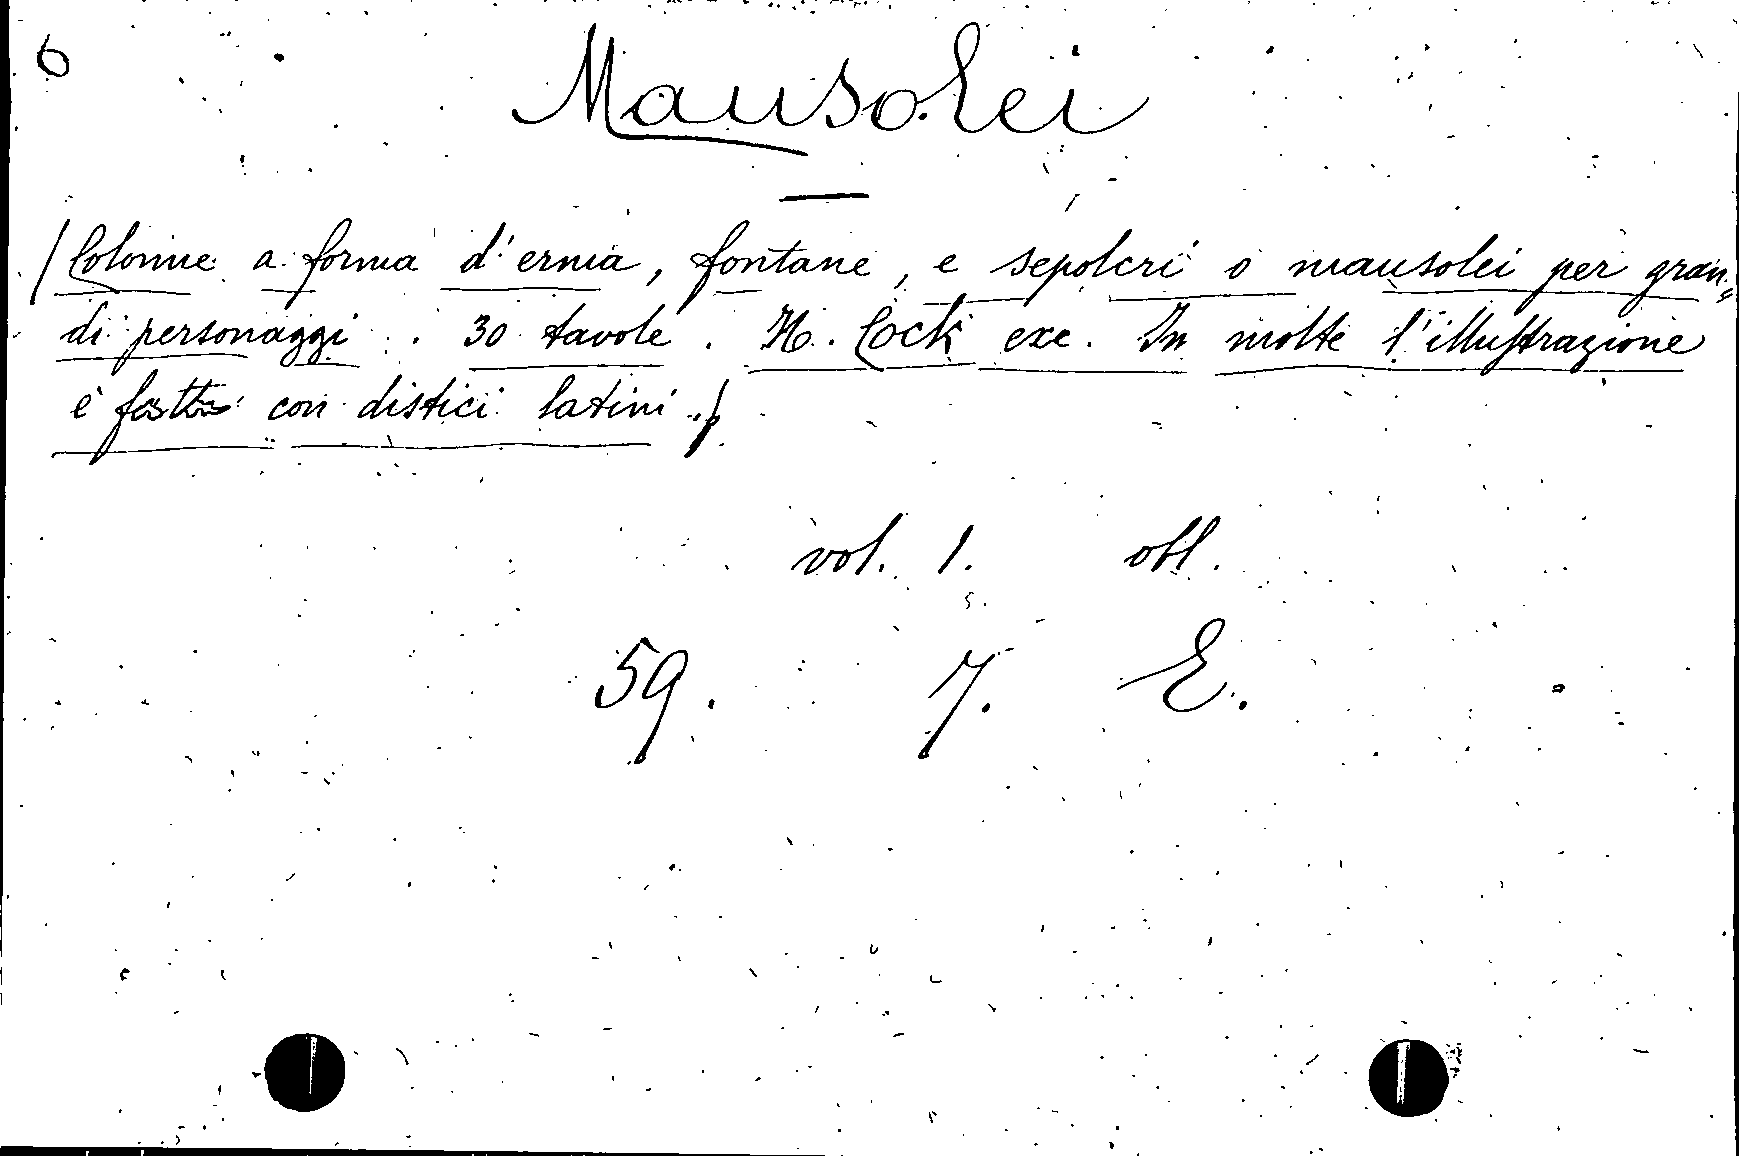 6
Mausolei
(Colonne a forma d'erma, fontane, e sepolcri o mausolei per gran=
di personaggi. 30 tavole. H. Cock exe. In molte l'illustrazione
è fatta con distici latini.)
vol. 1. obl.
59. 7. E.